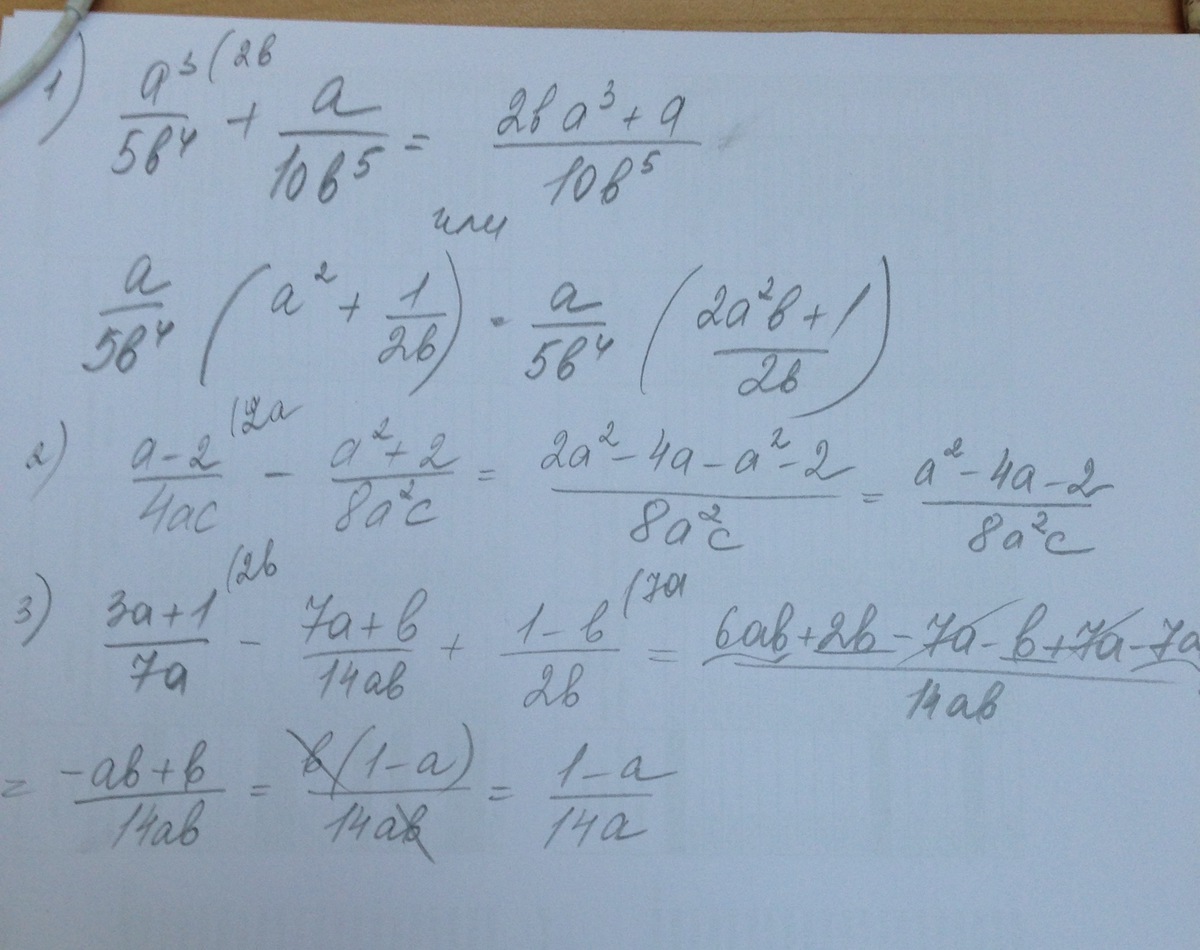 1) a³/5b⁴ (2b + a/10b⁵ = (2ba³+a)/10b⁵
или
a/5b⁴ (a² + 1/2b) = a/5b⁴ ((2a²b+1)/2b)
2) (a-2)/4ac (2a - (a²+2)/8a²c = (2a²-4a-a²-2)/8a²c = (a²-4a-2)/8a²c
3) (3a+1)/7a (2b - (7a+b)/14ab + (1-b)/2b (7a = (6ab+2b-7a-b+7a-7a)/14ab
= (-ab+b)/14ab = b(1-a)/14ab = (1-a)/14a